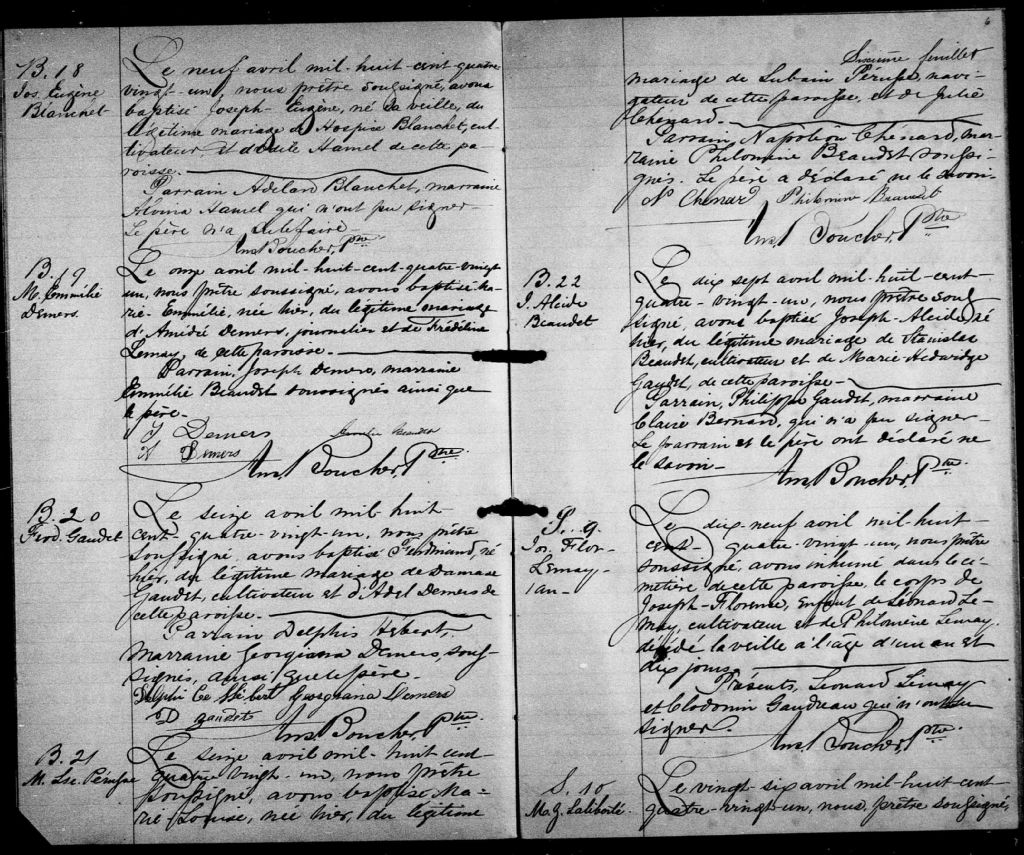 B. 18
Jos. Eugène
Blanchet
Le neuf avril mil-huit-cent-quatre
vingt-un, nous prêtre soussigné, avons
baptisé Joseph-Eugène, né la veille, du
légitime mariage d'Hospice Blanchet, cul-
tivateur, et d'Odile Hamel de cette pa-
roisse.
Parrain Adelard Blanchet, marraine
Alvina Hamel qui n'ont pu signer-
Le père n'a su le faire-
Ans. Boucher, Ptre
B. 19
M. Emmilie
Demers.
Le onze avril mil-huit-cent-quatre-vingt
un, nous prêtre soussigné, avons baptisé Ma-
rie-Emmélie, née hier, du légitime mariage
d'Amédé Demers, journalier et de
Lemay, de cette paroisse-
Parrain, Joseph Demers, marraine
Emmélie Beaudet soussignés ainsi que
le père-
J Demers
Demers
Ans. Boucher, Ptre
B. 20
Ferd. Gaudet
Le seize avril mil-huit-
cent-quatre-vingt-un, nous prêtre
soussigné, avons baptisé Ferdinand, né
hier, du légitime mariage de Damase
Gaudet, cultivateur et d'Adel Demers de
cette paroisse.
Parrain Delphis Hébert,
Marraine Georgiana Demers, sous-
signés, ainsi que le père-
Hébert Georgeana Demers
D gaudet
Ans. Boucher, Ptre
B. 21
M. Lse. Pérusse
Le seize avril mil-huit cent
quatre vingt-un, nous prêtre
soussigné, avons baptisé Ma-
rie Louise, née hier, du légitime
6
Sixième feuillet
mariage de Lubain Pérusse, navi-
gateur de cette paroisse, et de Julie
Chénard.
Parrain Napoléon Chénard, mar-
raine Philomène Beaudet soussi-
gnés. Le père a déclaré ne le savoir-
N Chenard Philomene Beaudet
Ans. Boucher, Ptre
B. 22
J. Alcide
Beaudet
Le dix sept avril mil-huit-cent-
quatre-vingt-un, nous prêtre sous-
signé, avons baptisé Joseph-Alcide, né
hier, du légitime mariage de Stanislas
Beaudet, cultivateur et de Marie Hedwidge
Gaudet, de cette paroisse-
Parrain, Philippe Gaudet, marraine
Claire Bernard, qui n'a pu signer-
Le parrain et le père ont déclaré ne
le savoir-
Ans. Boucher, Ptre
S. 9
Jos. Flor-
Lemay-
1 an-
Le dix-neuf avril mil-huit-
cent-quatre-vingt-un, nous prêtre
soussigné, avons inhumé dans le ci-
metière de cette paroisse, le corps de
Joseph-Florence, enfant de Léonard Le-
may, cultivateur et de Philomène Lemay,
décédé la veille à l'âge d'un an et
dix jours.
Présents, Léonard Lemay
et Clodomir Gaudreau qui n'ont su
signer.
Ans. Boucher, Ptre
S. 10
M. J. Laliberté
Le vingt-six avril mil-huit-cent-
quatre-vingt-un, nous, prêtre soussigné,